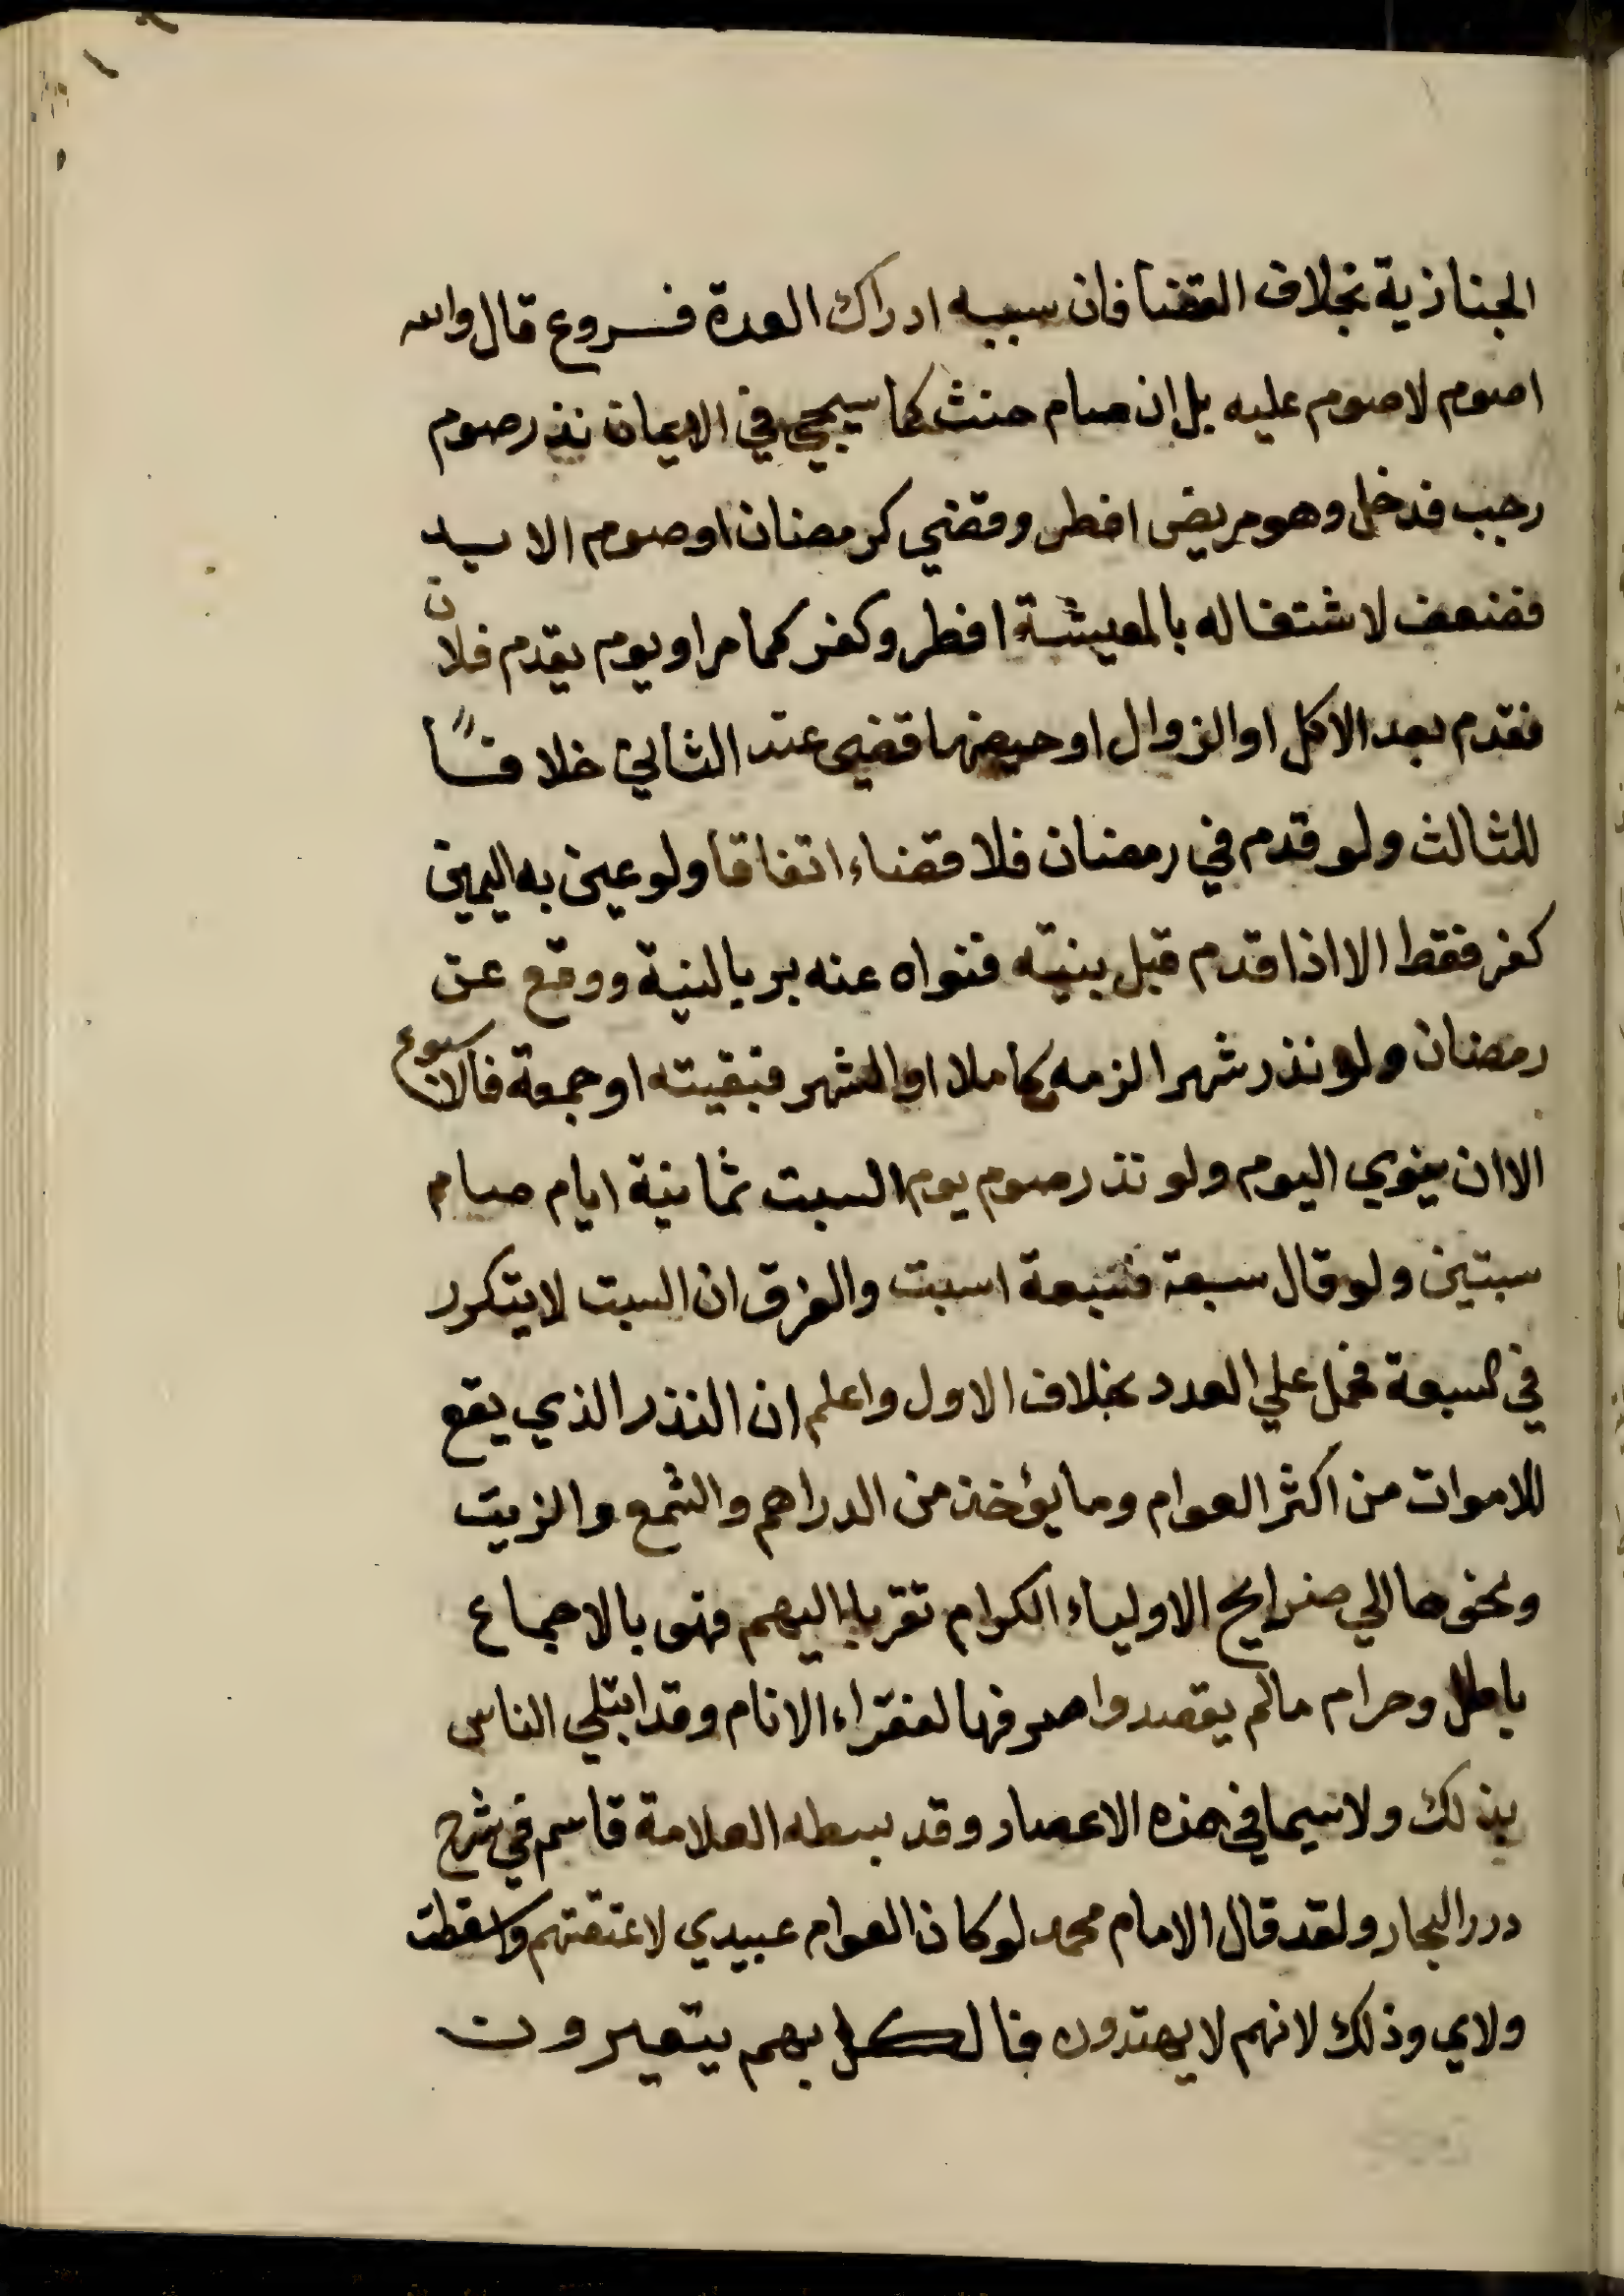 الجنازية بخلاف القضا فان سببه ادراك العدة فروع قال والله
اصوم لاصوم عليه بل ان صام حنث كما سيجي في الايمان نذر صوم
رجب فدخل وهو مريض افطر وقضي كرمضان او صوم الابد
فضعف لاشتغاله بالمعيشة افطر وكفر كما مر او يوم يقدم فلان
فقدم بعد الاكل او الزوال او حيضها قضي عند الثاني خلافًا
للثالث ولو قدم في رمضان فلا قضاء اتفاقا ولو عين به اليمين
كفر فقط الا اذا قدم قبل بنيته فنواه عنه بر بالنية ووقع عن
رمضان ولو نذر شهرا لزمه كاملا او الشهر فبقيته او جمعة فالاسبوع
الا ان ينوي اليوم ولو نذر صوم يوم السبت ثمانية ايام صام
سبتين ولو قال سبعة فسبعة اسبت والفرق ان السبت لا يتكرر
في السبعة فحمل علي العدد بخلاف الاول واعلم ان النذر الذي يقع
للاموات من اكثر العوام وما يؤخذ من الدراهم والشمع والزيت
ونحوها الي ضرايح الاولياء الكرام تقربا اليهم فهو بالاجماع
باطل وحرام مالم يقصدوا صرفها لفقراء الانام وقد ابتلي الناس
بذلك ولاسيما في هذه الاعصار وقد بسطه العلامة قاسم في شرح
درر البحار ولقد قال الامام محمد لو كان العوام عبيدي لاعتقتهم واسقطت
ولاي وذلك لانهم لا يهتدون فالكل بهم يتعيرون